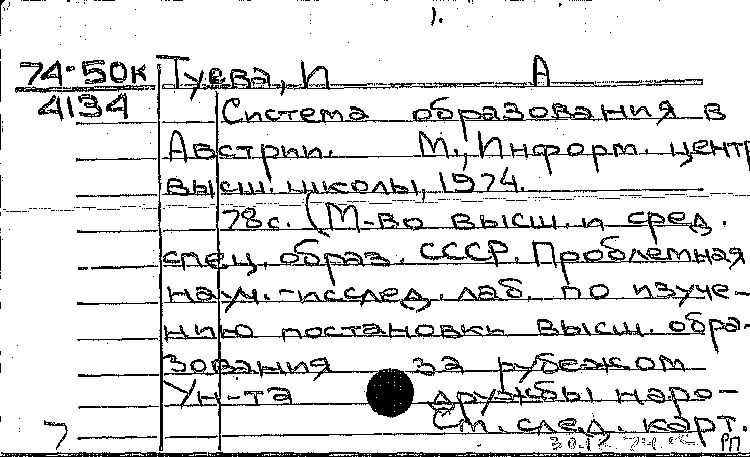 1.
74-50к Туева, И А
4134 Система образования в
Австрии. М., Информ. центр
высш. школы, 1974.
78с. (М-во высш. и сред.
спец. образ. СССР. Проблемная
науч.-исслед. лаб. по изуче-
нию постановки высш. обра-
зования за рубежом
Ун-та дружбы наро-
7 См. след. карт.
РП